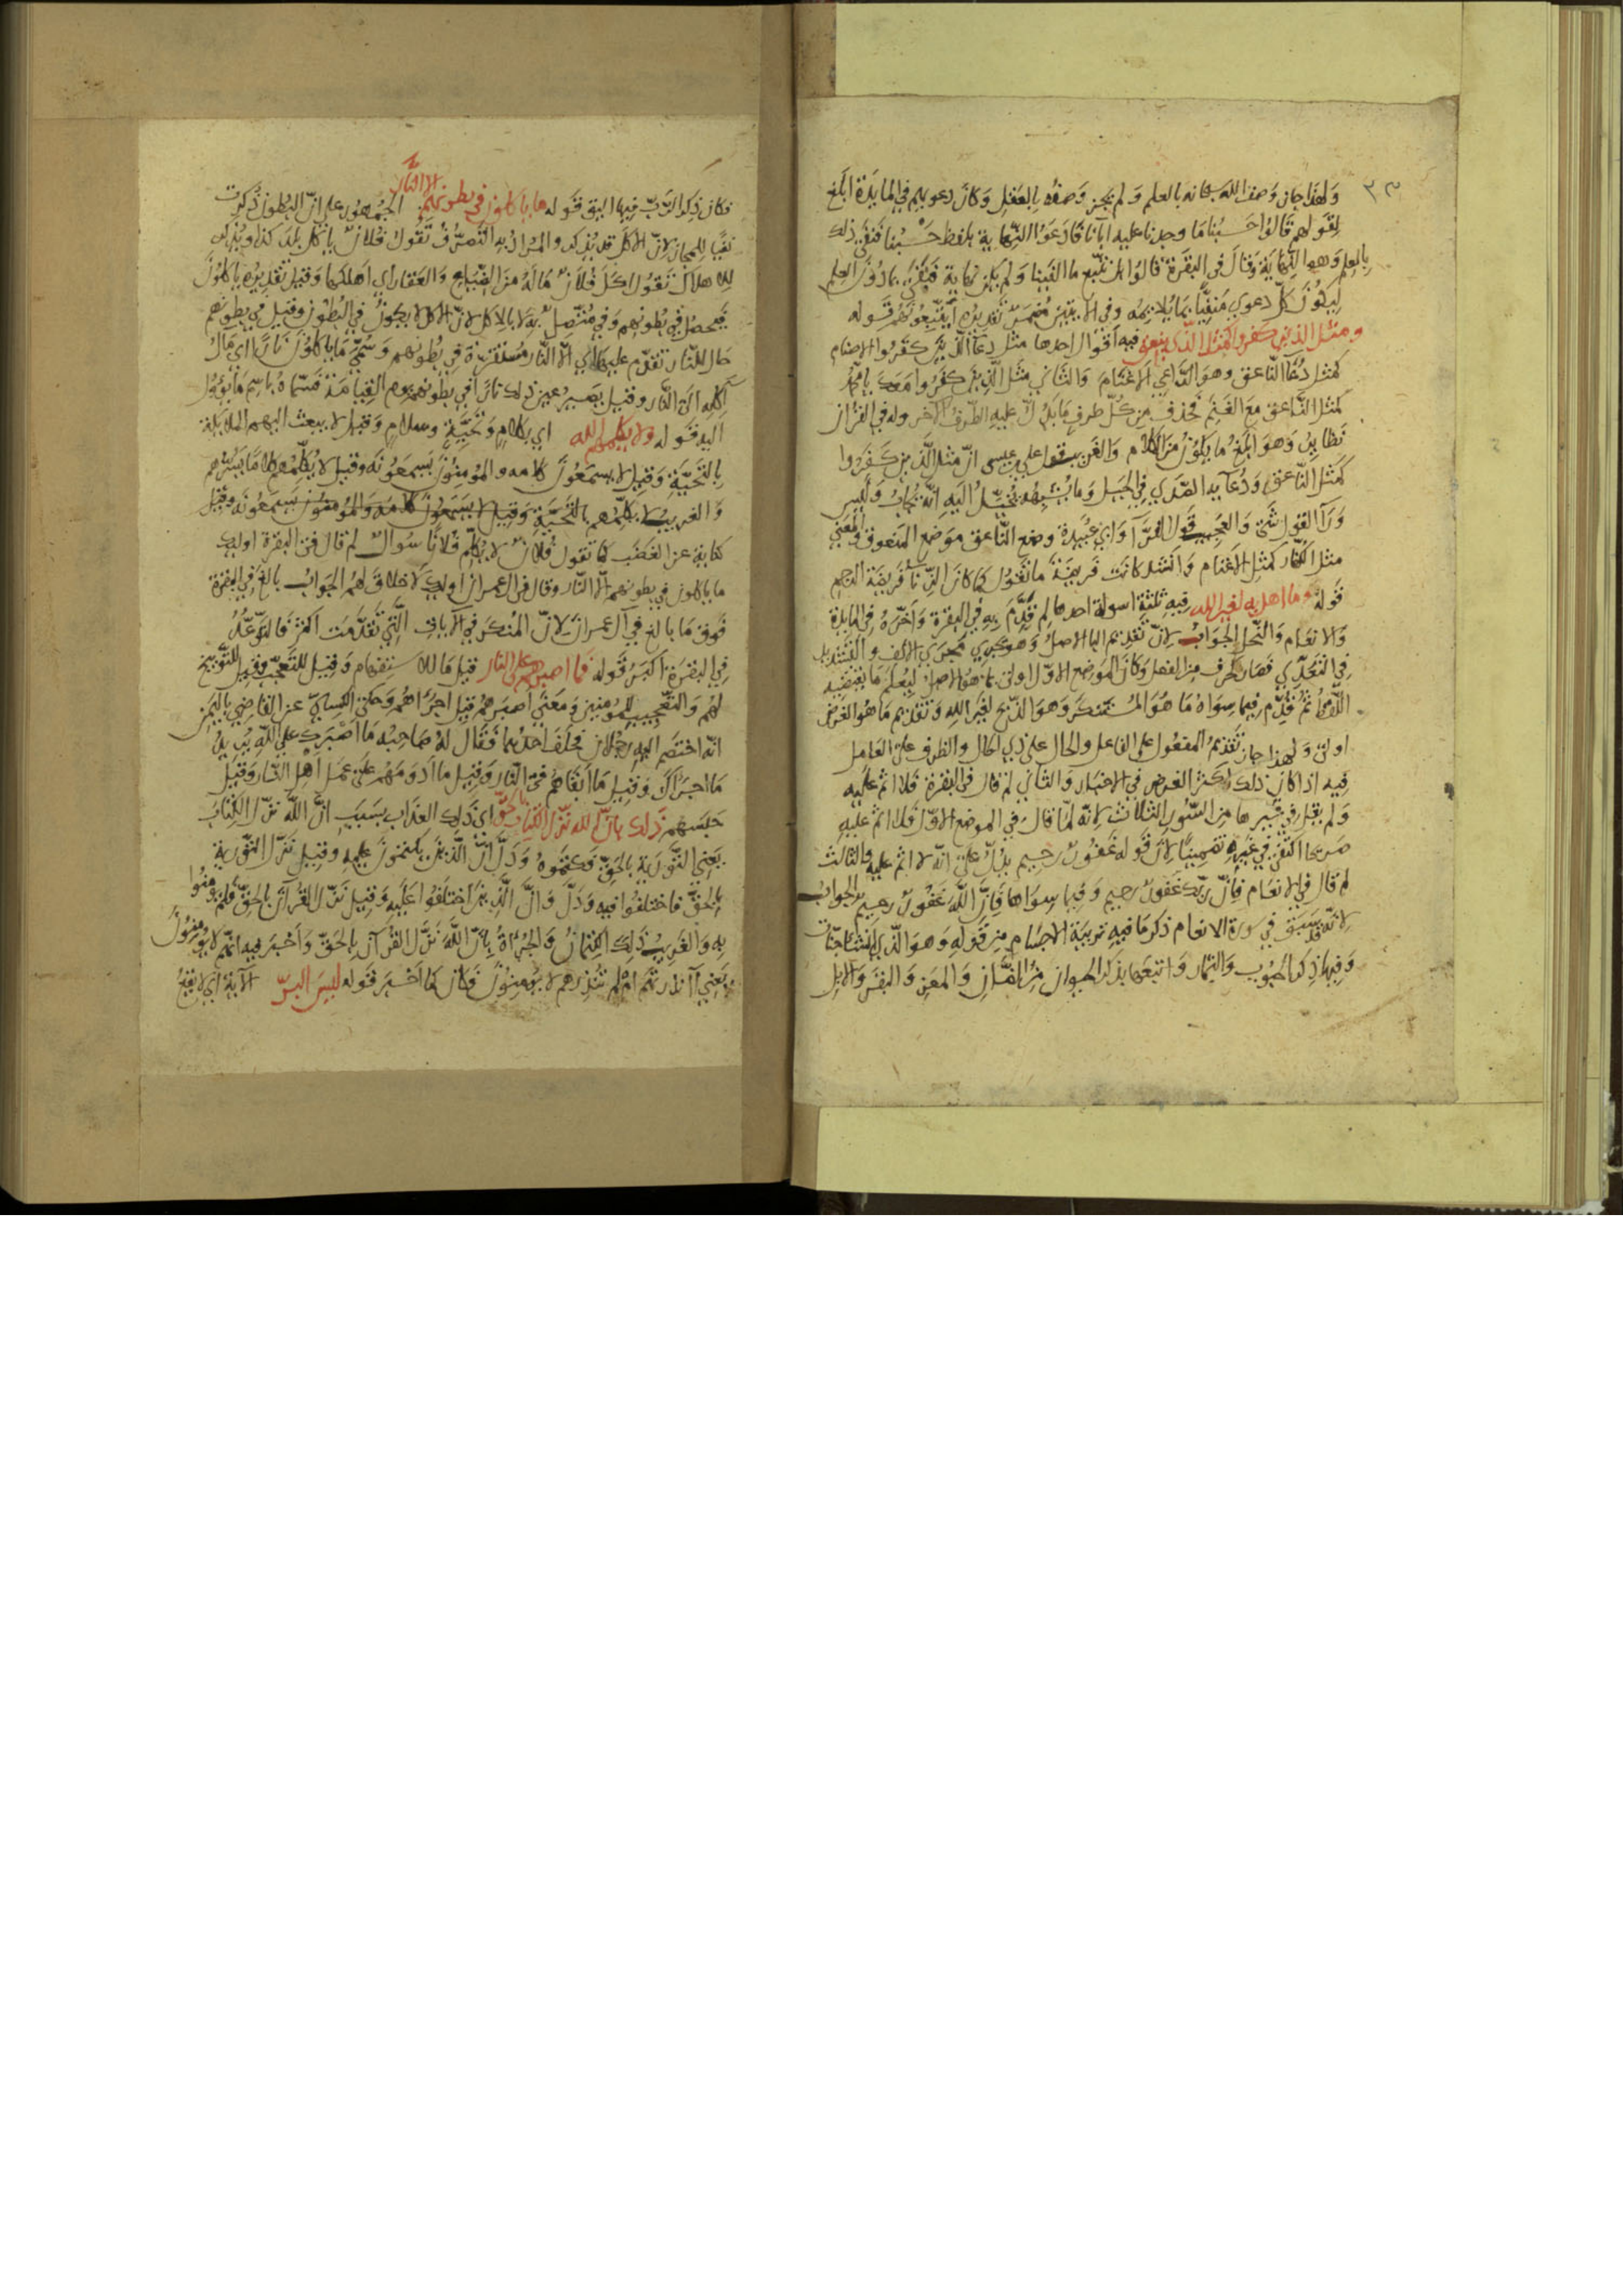 ٣٣
ولهذا جاز وصف الله سبحانه بالعلم ولم يجز وصفه بالعقل وكان دعويهم في المايدة ابلغ
لقولهم قالوا حسبنا ما وجدنا عليه آبانا فادعوا النهاية بلفظ حسبنا فنفى ذلك
بالعلم وهو النهاية وقال في البقرة قالوا بل نتبع ما الفينا ولم يكن نهاية فنفى بما دون العلم
ليكون كل دعوى منفيا بما يلايمه وفي الآيتين مضمر تقديره ايتبعونهم قوله
ومثل الذين كفروا كمثل الذي ينعق فيه اقوال احدها مثل دعا الذين كفروا الاصنام
كمثل دعآ الناعق وهو الداعي الاغنام والثاني مثل الذين كفروا معك يا محمد
كمثل الناعق مع الغنم فحذف من كل طرف ما يدل عليه الطرف الآخر وله في القرآن
نظاير وهو ابلغ ما يكون من الكلام والغريب قول علي بن عيسى ان مثل الذين كفروا
كمثل الناعق ودعآيه الصدى في الجبل وما يشبهه يخيل اليه انه يجاب وليس
ورآ القول شئ والعجيب قول الفرآ وابي عبيدة وضع الناعق موضع المنعوق والمعنى
مثل الكفار كمثل الاغنام وانشد كانت فريضة ما تقول كما كان الزنا فريضة الرجم
قوله وما اهل به لغير الله فيه ثلثة اسولة احدها لم قدم به في البقرة واخره في المايدة
والانعام والنحل الجواب لان تقديم البا الاصل وهو يجري مجرى الالف والتشديد
في التعدي فصار كحرف من الفعل وكان الموضع الاول اولى بما هو الاصل ليعلم ما يقتضيه
اللفظ ثم قدم فيما سواه ما هو المستنكر وهو الذبح لغير الله وتقديم ما هو الغرض
اولى ولهذا جاز تقديم المفعول على الفاعل والحال على ذي الحال والظرف على العامل
فيه اذا كان ذلك اكثر الغرض في الاخبار والثاني لم قال في البقرة فلا اثم عليه
ولم يقل في غيرها من السور الثلاث لانه لما قال في الموضع الاول فلا اثم عليه
صريحا اكتفى في غيره تضمينا لان قوله غفور رحيم يدل على انه لا اثم عليه والثالث
لم قال في الانعام فان ربك غفور رحيم وفيما سواها فان الله غفور رحيم الجواب
لانه قد سبق في سورة الانعام ذكر ما فيه تربية الاجسام من قوله وهو الذي انشا جنات
وفيها ذكر الحبوب والثمار واتبعها بذكر الحيوان من الضان والمعز والبقر والابل
فكان ذكر الرب فيها اليق قوله ما ياكلون في بطونهم الا النار الجمهور على ان البطون ذكرت
نفيا للمجاز لان الاكل قد يذكر والمراد به التصرف تقول فلان ياكل بلد كذا ويذكر
للاهلاك تقول اكل فلان ماله من الضياع والعقار اي اهلكها وقيل تقديره ياكلون
فيحصل في بطونهم وفي متصل به لا بالاكل لان الاكل لا يكون في البطون وقيل في بطونهم
حال للنار تقدم عليها اي الا النار مستقرة في بطونهم وسمى ما ياكلون نارا اي مآل
آكله الى النار وقيل يصير عين ذلك نارا في بطونهم يوم القيامة فسماه باسم ما يؤول
اليه قوله ولا يكلمهم الله اي بكلام وتحية وسلام وقيل لا يبعث اليهم الملايكة
بالتحية وقيل لا يسمعون كلامه والمومنون يسمعونه وقيل لا يكلمهم كلاما يسرهم
والغريب لا يكلمهم بالتحية وقيل لا يسمعون كلامه والمومنون يسمعونه وقيل
كناية عن الغضب كما تقول فلان لا يكلم فلانا سوال لم قال في البقرة اوليك
ما ياكلون في بطونهم الا النار وقال في ال عمران اوليك لا خلاق لهم الجواب بالغ في البقرة
فوق ما بالغ في آل عمران لان المنكر في الآيات التي تقدمت اكثر فالتوعد
في البقرة اكبر قوله فما اصبرهم على النار قيل ما للاستفهام وقيل للتعجب وقيل للتوبيخ
لهم والتعجيب للمومنين ومعنى اصبرهم قيل اجراهم وحكى الكسائي عن القاضي باليمن
انه اختصم اليه رجلان فحلف احدهما فقال له صاحبه ما اصبرك على الله يريد
ما اجراك وقيل ما ابقاهم في النار وقيل ما ادومهم على عمل اهل النار وقيل
حبسهم ذلك بان الله نزل الكتاب بالحق اي ذلك العذاب بسبب ان الله نزل الكتاب
يعني التورية بالحق فكتموه ودل ان الذين يكتمون عليه وقيل نزل التورية
بالحق فاختلفوا فيه ودل وان الذين اختلفوا عليه وقيل نزل القرآن بالحق فلم يومنوا
به والغريب ذلك الكتمان والجرأة بان الله نزل القرآن بالحق واخبر فيه انهم لا يومنون
يعني آانذرتهم ام لم تنذرهم لا يومنون فكان كما اخبر قوله ليس البر الآية اي لا يقع